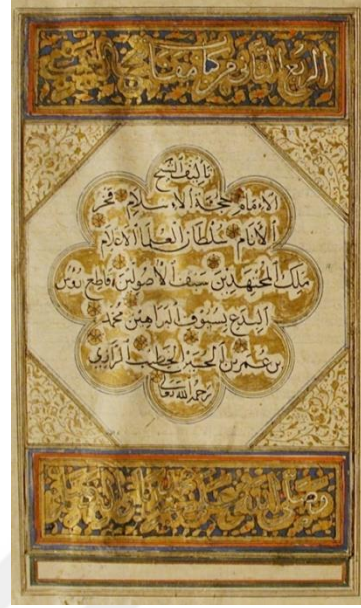 الربع الثاني من كتاب مفاتيح
تأليف الشيخ
الإمام حجة الإسلام فخر
الأنام سلطان العلماء الأعلام
ملك المجتهدين سيف الأصوليين قاطع رؤس
البدع بسيوف البراهين محمد
بن عمر بن الحسين الخطيب الرازي
رحمه الله تعالى
وصلى الله على